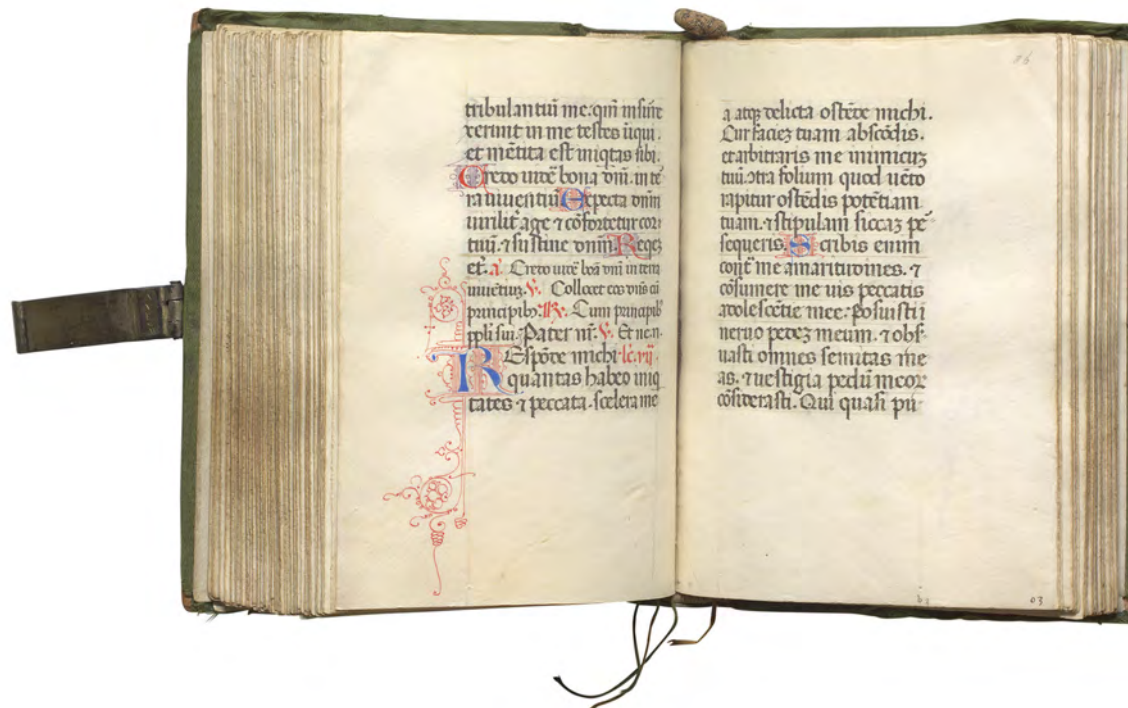 tribulantiũ me. qm̃ insure
xerunt in me testes iĩqui.
et mẽtita est iniqtas sibi.
Credo uidẽ bona dñi. in te
ra uiuentiũ. Expecta dñm
uirilit̃ age ⁊ cõfortetur cor
tuũ. ⁊ sustine dñm. Reqez
et̃. a᷉. Credo uidẽ boã dñi in terra
uiuẽtiuz. V. Collocet eos dñs cũ
principib. R. Cum principib
ppli sui. Pater nr̃. V. Et ne.n.
REspõde michi lc̃. vij.
quantas habeo iniq
tates ⁊ peccata. scelera me
86
a atqz delicta ostẽde michi.
Cur faciez tuam abscõdis.
et arbitraris me inimicuz
tuũ. ɔtra folium quod uẽto
rapitur ostẽdis potẽtiam
tuam. ⁊ stipulam siccaz pe
sequeris. Scribis enim
cont̃ me amaritudines. ⁊
cõsumere me uis peccatis
adolescẽtie mee. Posuisti i
neruo pedez meum. ⁊ obs
uasti omnes semitas me
as. ⁊ uestigia pedũ meor
cõsiderasti. Qui quasi pu
03